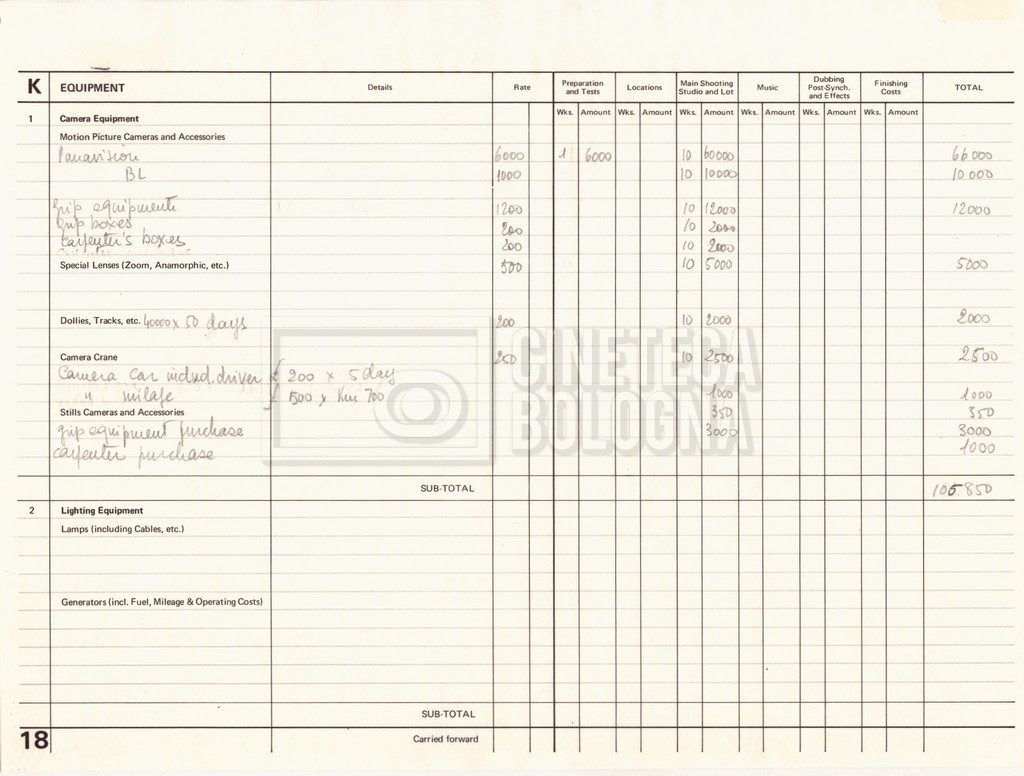 K EQUIPMENT Details Rate Preparation and Tests Locations Main Shooting Studio and Lot Music Dubbing Post-Synch. and Effects Finishing Costs TOTAL
1 Camera Equipment Wks. Amount Wks. Amount Wks. Amount Wks. Amount Wks. Amount Wks. Amount
Motion Picture Cameras and Accessories
Panavision 6000 1 6000 10 60000 66 000
BL 1000 10 10000 10 000
Grip equipment 1200 10 12000 12000
Grip boxes 200 10 2000
Carpenter's boxes 200 10 2000
Special Lenses (Zoom, Anamorphic, etc.) 500 10 5000 5000
Dollies, Tracks, etc. 40000 x 50 days 200 10 2000 2000
Camera Crane 250 10 2500 2500
Camera car includ. driver 200 x 5 day
" milage 1500 x Km 700 1000 1000
Stills Cameras and Accessories 350 350
grip equipment purchase 3000 3000
carpenter purchase 1000
SUB-TOTAL 105.850
2 Lighting Equipment
Lamps (including Cables, etc.)
Generators (incl. Fuel, Mileage & Operating Costs)
SUB-TOTAL
18 Carried forward
CINETECA
BOLOGNA